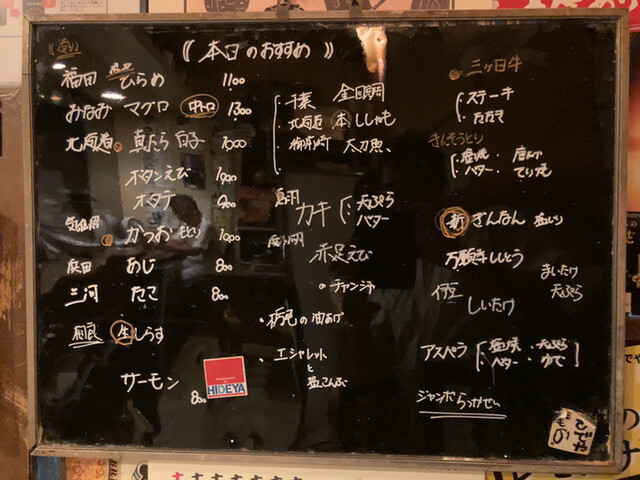 《 本日のおすすめ 》
福田 ひらめ 1100
みなみ マグロ 中トロ 1300
北海道 真たら 白子 1000
ボタンえび 1000
ホタテ 900
気仙沼 かつお もどり 1000
あじ 800
三河 たこ 800
相良 生 しらす
サーモン 800
HIDEYA
千葉 金目鯛
北海道 本 ししゃも
御前崎 太刀魚
カキ 天ぷら
バター
赤足えび
チャンジャ
・栃尾の油あげ
・エシャレット
と
塩こんぶ
三ヶ日牛
ステーキ
たたき
きんそうどり
塩焼・唐あげ
バター・てり焼
新 ぎんなん 塩いり
万願寺ししとう
まいたけ
天ぷら
しいたけ
アスパラ
塩焼・天ぷら
バター・ゆで
ジャンボらっかせい
ひでや